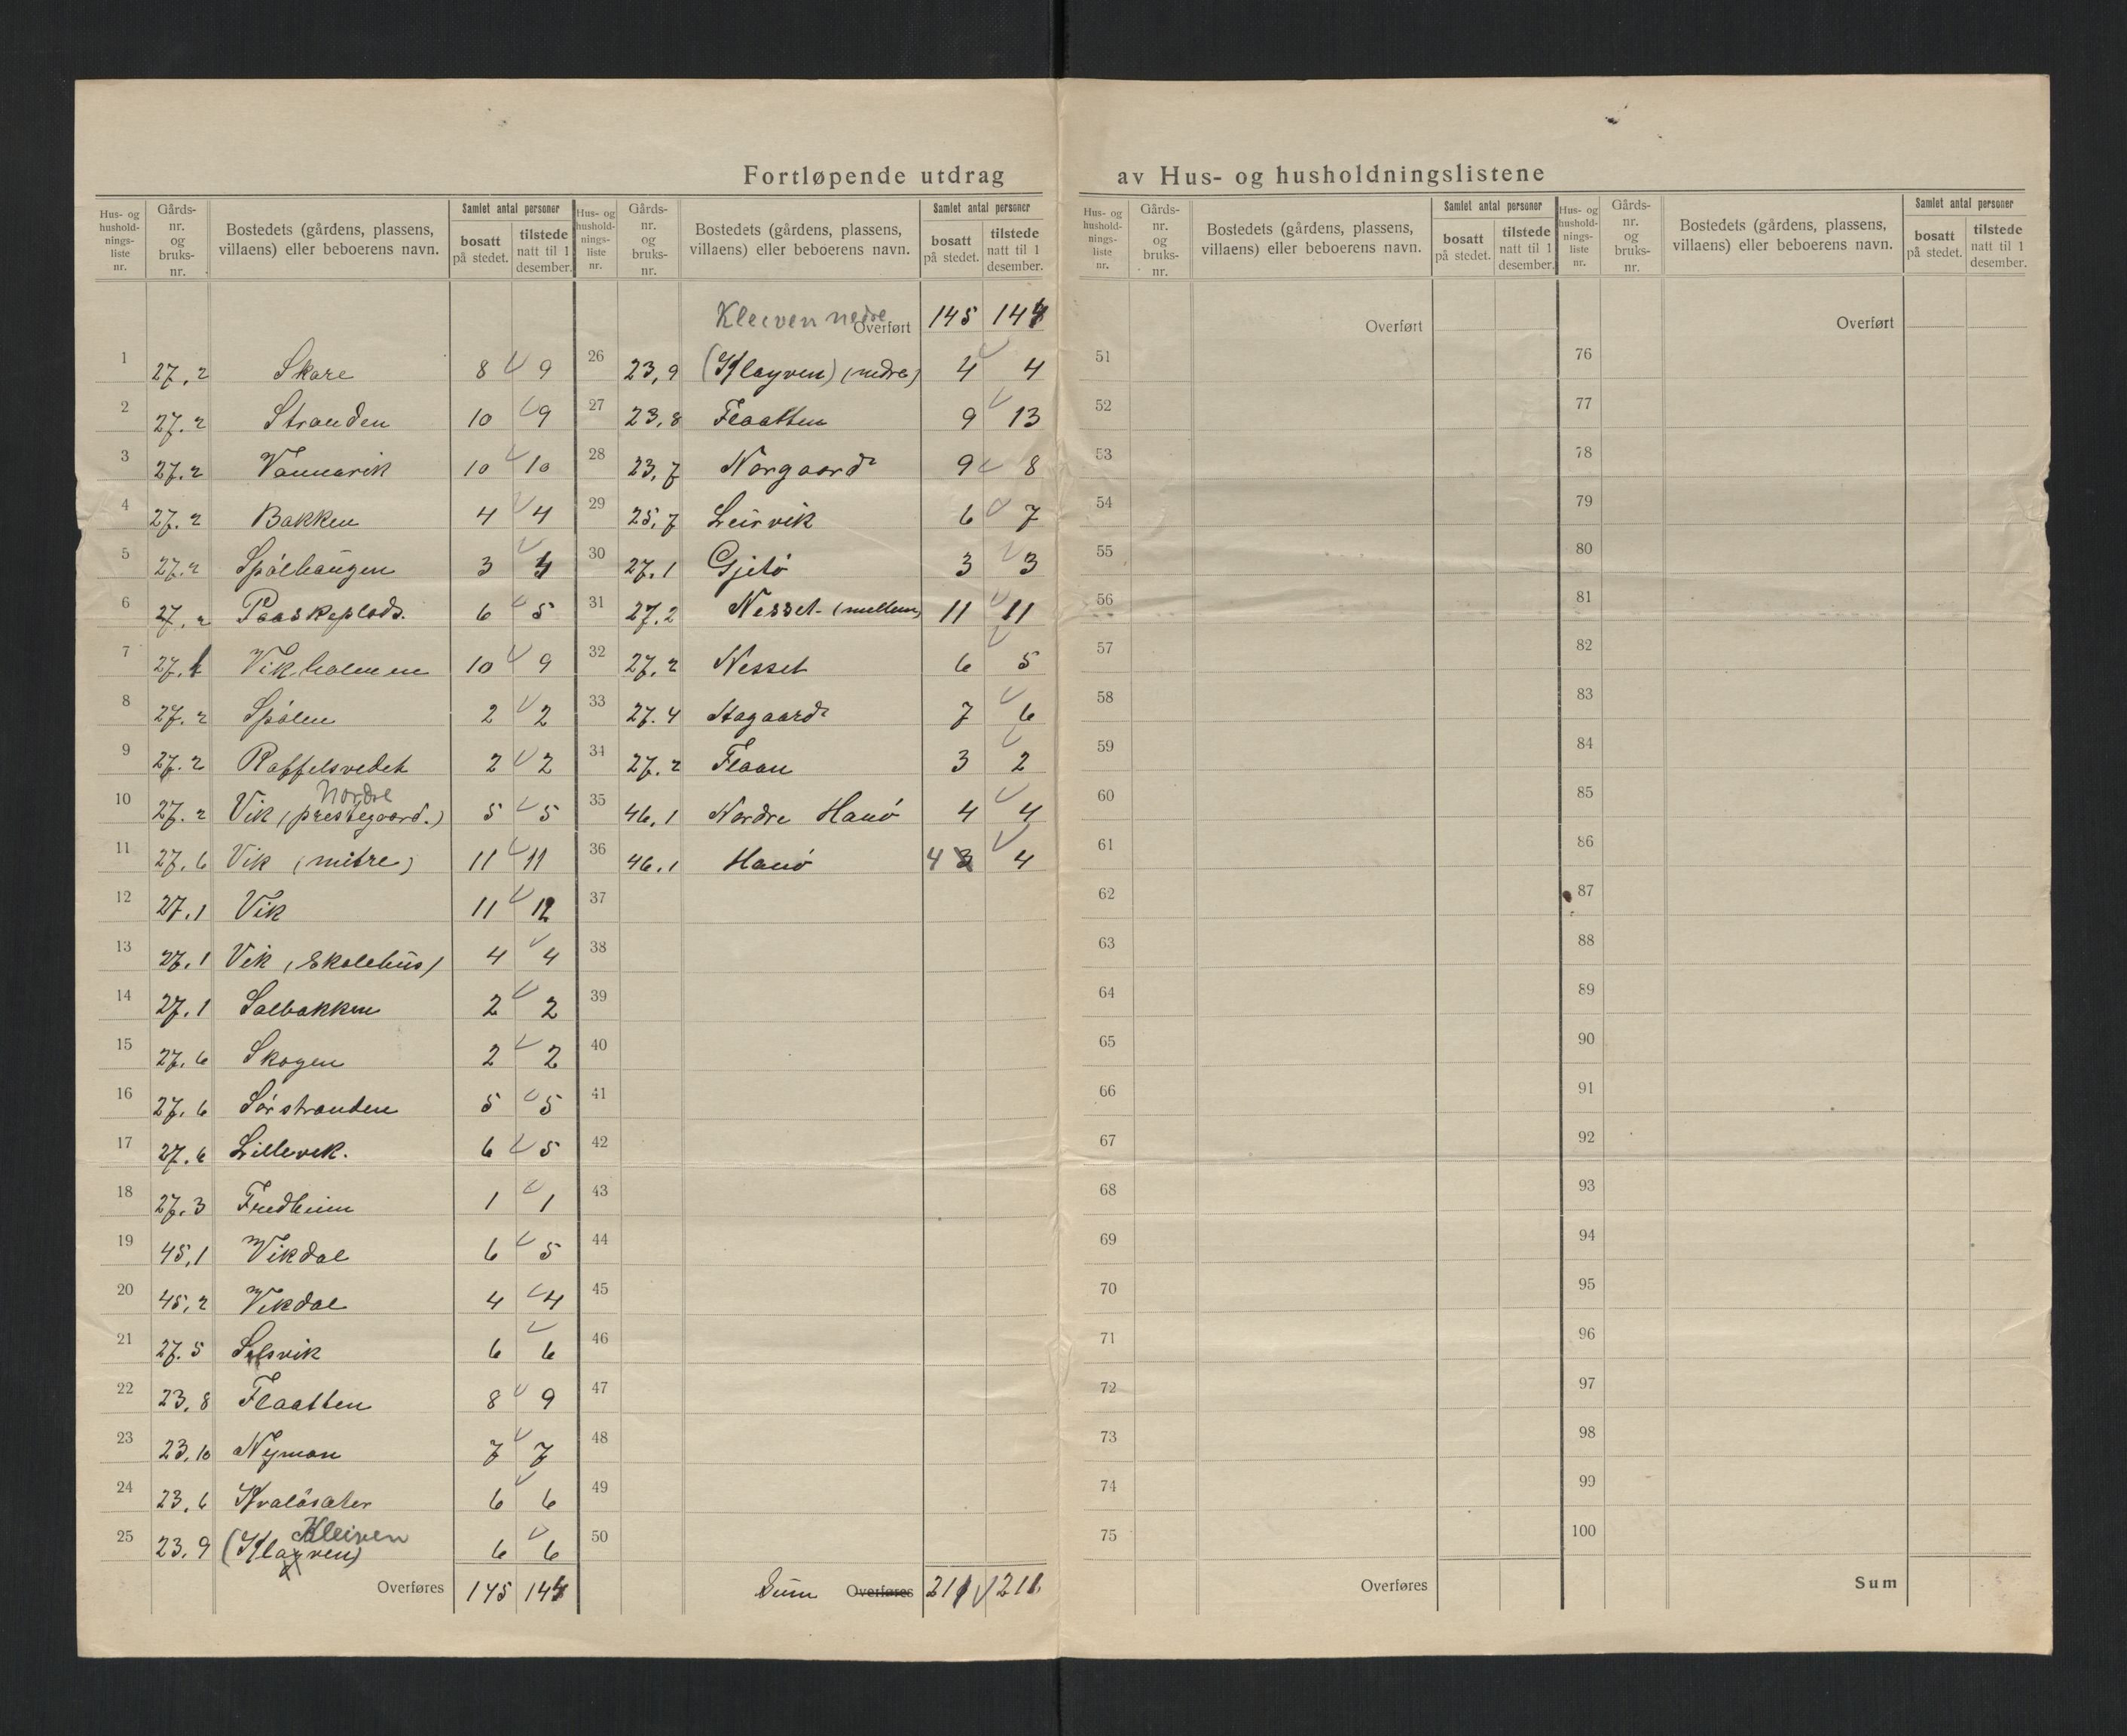 Fortløpende utdrag av Hus- og husholdningslistene
Hus- og hushold-nings-liste nr. | Gårds-nr. og bruks-nr. | Bostedets (gårdens, plassens, villaens) eller beboerens navn. | Samlet antal personer | bosatt på stedet. | tilstede natt til 1 desember.
1 27,2 Skare 8 9
2 27.2 Stranden 10 9
3 27.2 Vannavik 10 10
4 27.2 Bakken 4 4
5 27.2 Spólhaugen 3 4
6 27.2 Paaskeplads. 6 5
7 27.1 Vikholmen 10 9
8 27.2 Spólen 2 2
9 27.2 Raffelsvedet 2 2
Nordre
10 27.2 Vik (prestegaard.) 5 5
11 27.6 Vik (mitre) 11 11
12 27.1 Vik 11 12
13 27.1 Vik (Skolehus) 4 4
14 27.1 Solbakken 2 2
15 27.6 Skogen 2 2
16 27.6 Sórstranden 5 5
17 27.6 Lillevik. 6 5
18 27.3 Fredheim 1 1
19 45,1 Vikdal 6 5
20 45,2 Vikdal 4 4
21 27.5 Selsvik 6 6
22 23.8 Flaatten 8 9
23 23.10 Nyman 7 7
24 23.6 Kvalósæter 6 6
Kleiven
25 23.9 (Klayven) 6 6
Overføres 145 144
Hus- og hushold-nings-liste nr. | Gårds-nr. og bruks-nr. | Bostedets (gårdens, plassens, villaens) eller beboerens navn. | Samlet antal personer | bosatt på stedet. | tilstede natt til 1 desember.
Kleiven nedre Overført 145 144
26 23,9 (Klayven) (nedre) 4 4
27 23,8 Flaatten 9 13
28 23,7 Norgaard 9 8
29 25,7 Leirvik 6 7
30 27.1 Gjetó 3 3
31 27.2 Nesset (mellem) 11 11
32 27.2 Nesset 6 5
33 27.4 Hagaard 7 6
34 27.2 Flaan 3 2
35 46.1 Nordre Hanó 4 4
36 46.1 Hanó 4 3 4
37
38
39
40
41
42
43
44
45
46
47
48
49
50
Sum Overføres 211 211
Hus- og hushold-nings-liste nr. | Gårds-nr. og bruks-nr. | Bostedets (gårdens, plassens, villaens) eller beboerens navn. | Samlet antal personer | bosatt på stedet. | tilstede natt til 1 desember.
Overført
51
52
53
54
55
56
57
58
59
60
61
62
63
64
65
66
67
68
69
70
71
72
73
74
75
Overføres
Hus- og hushold-nings-liste nr. | Gårds-nr. og bruks-nr. | Bostedets (gårdens, plassens, villaens) eller beboerens navn. | Samlet antal personer | bosatt på stedet. | tilstede natt til 1 desember.
Overført
76
77
78
79
80
81
82
83
84
85
86
87
88
89
90
91
92
93
94
95
96
97
98
99
100
Sum